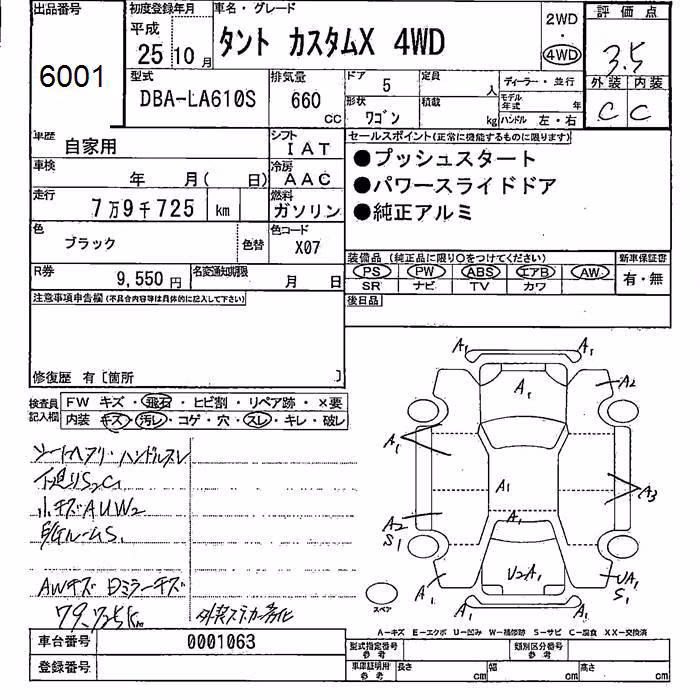 出品番号
6001
初度登録年月
平成
25 10 月
車名・グレード
タント カスタムX 4WD
2WD
・
4WD
評価点
3.5
外装 内装
C C
型式
DBA-LA610S
排気量
660
CC
ドア 5
定員 人
ディーラー・並行
形状 ワゴン
積載 kg
モデル年式 年
ハンドル 左・右
車歴 自家用
シフト IAT
車検 年 月( 日)
冷房 AAC
走行 7万9千725 km
燃料 ガソリン
色 ブラック 色替
色コード X07
R券 9,550円
名変通知期限 月 日
セールスポイント(正常に機能するものに限ります)
●プッシュスタート
●パワースライドドア
●純正アルミ
装備品(純正品に限り〇をつけてください)
PS PW ABS エアB AW
SR ナビ TV カワ
新車保証書
有・無
後日品
注意事項申告欄(不具合内容等は具体的に記入して下さい)
修復歴 有〔箇所 〕
検査員記入欄
FW キズ・飛石・ヒビ割・リペア跡・×要
内装 キズ・汚レ・コゲ・穴・スレ・キレ・破レ
シートヘタリ・ハンドルスレ
下廻りS2C1
小キズAUW2
S1
AWキズ ミラーキズ
79,725km
外装ステッカー劣化
A1 A1
A1
A2
A1
A1
A3
A1
A2
S1
A1
U2A1
UA1
S1
A1 A1
スペア
A-キズ E-エクボ U-凹み W-補修跡 S-サビ C-腐食 XX-交換済
車台番号 0001063
登録番号
型式指定番号
参考
類別区分番号
参考
車庫証明用
参考
長さ cm 幅 cm 高さ cm